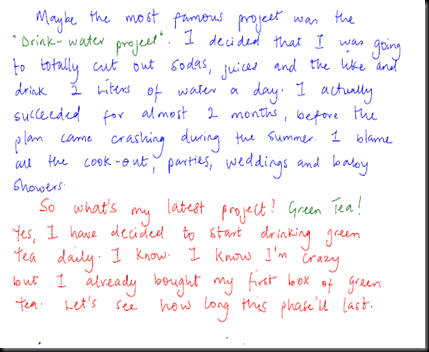 Maybe the most famous project was the
"Drink-water project". I decided that I was going
to totally cut out sodas, juices and the like and
drink 2 liters of water a day. I actually
succeeded for almost 2 months, before the
plan came crashing during the summer. I blame
all the cook-out, parties, weddings and baby
showers.
So what's my latest project? Green Tea!
Yes, I have decided to start drinking green
tea daily. I know. I know I'm crazy
but I already bought my first box of green
tea. Let's see how long this phase'll last.